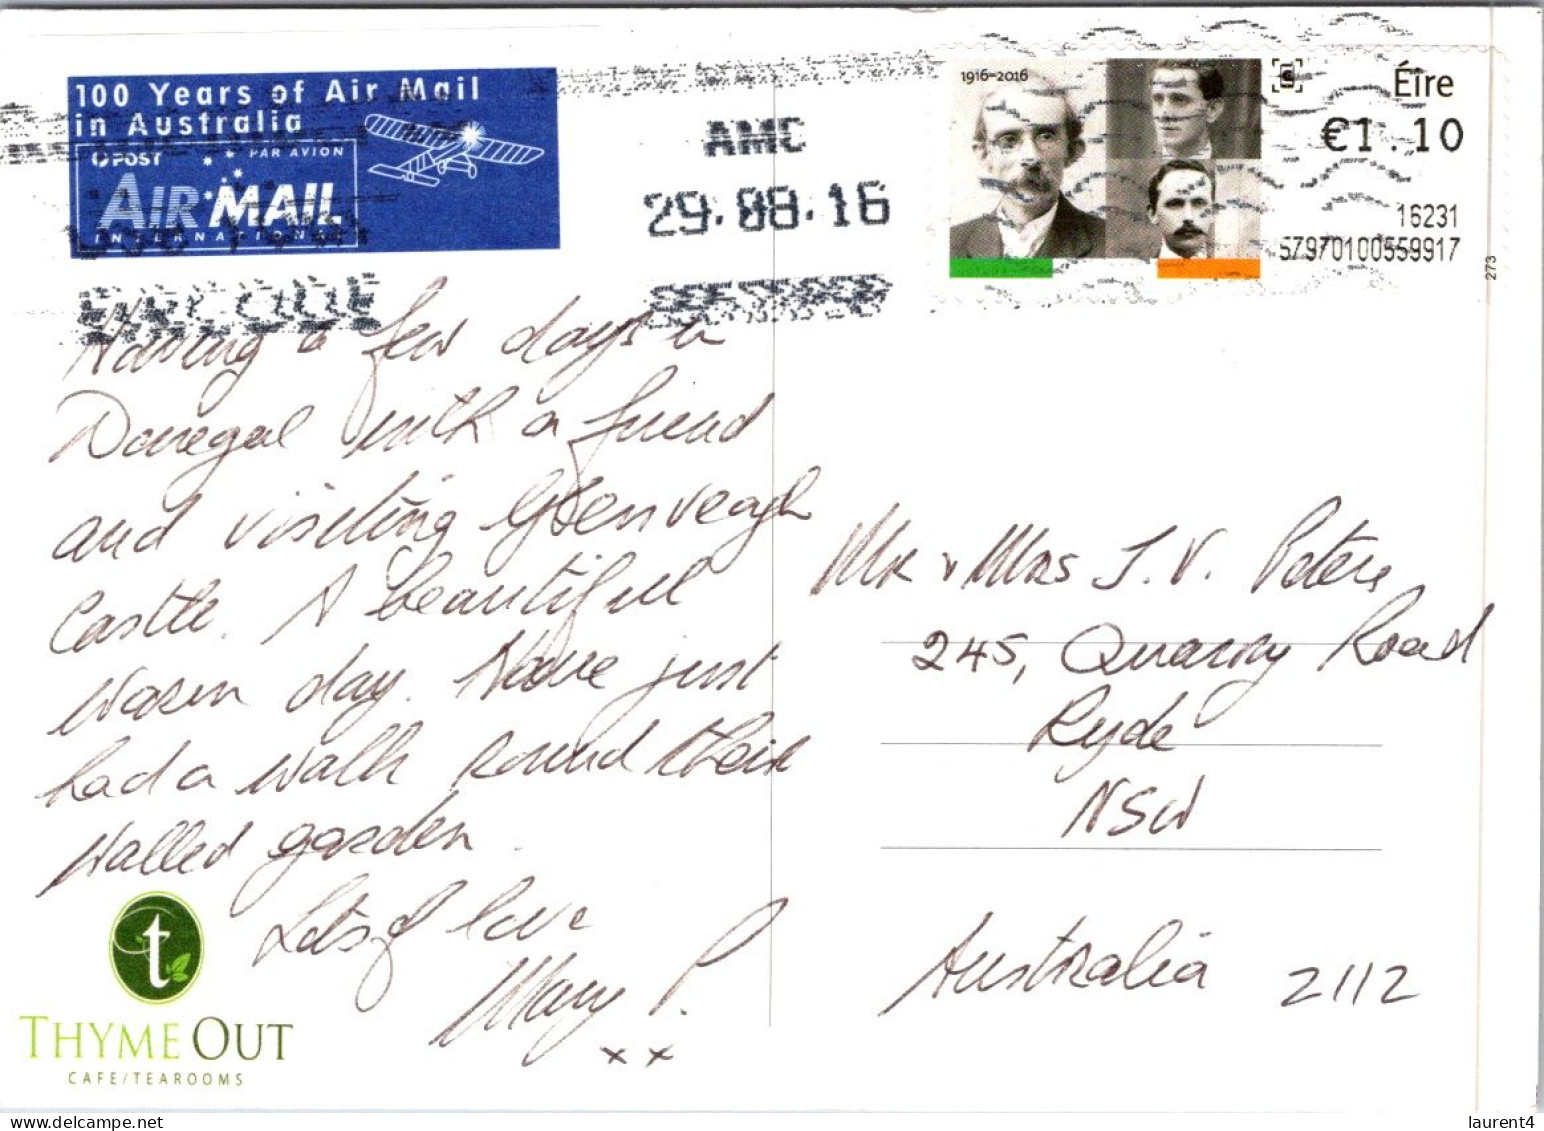 100 Years of Air Mail
in Australia
POST
PAR AVION
AIR MAIL
INTERNATIONAL
AMC
29.08.16
1916–2016
Éire
€1.10
16231
57970100559917
273
Having a few days in
Donegal with a friend
and visiting Glenveagh
Castle. A beautiful
warm day. Have just
had a walk round their
walled garden.
Lots of love
Mary P.
x x
Mr & Mrs J. V. Peters
245, Quarry Road
Ryde
NSW
Australia 2112
t
THYME OUT
CAFE/TEAROOMS
laurent4